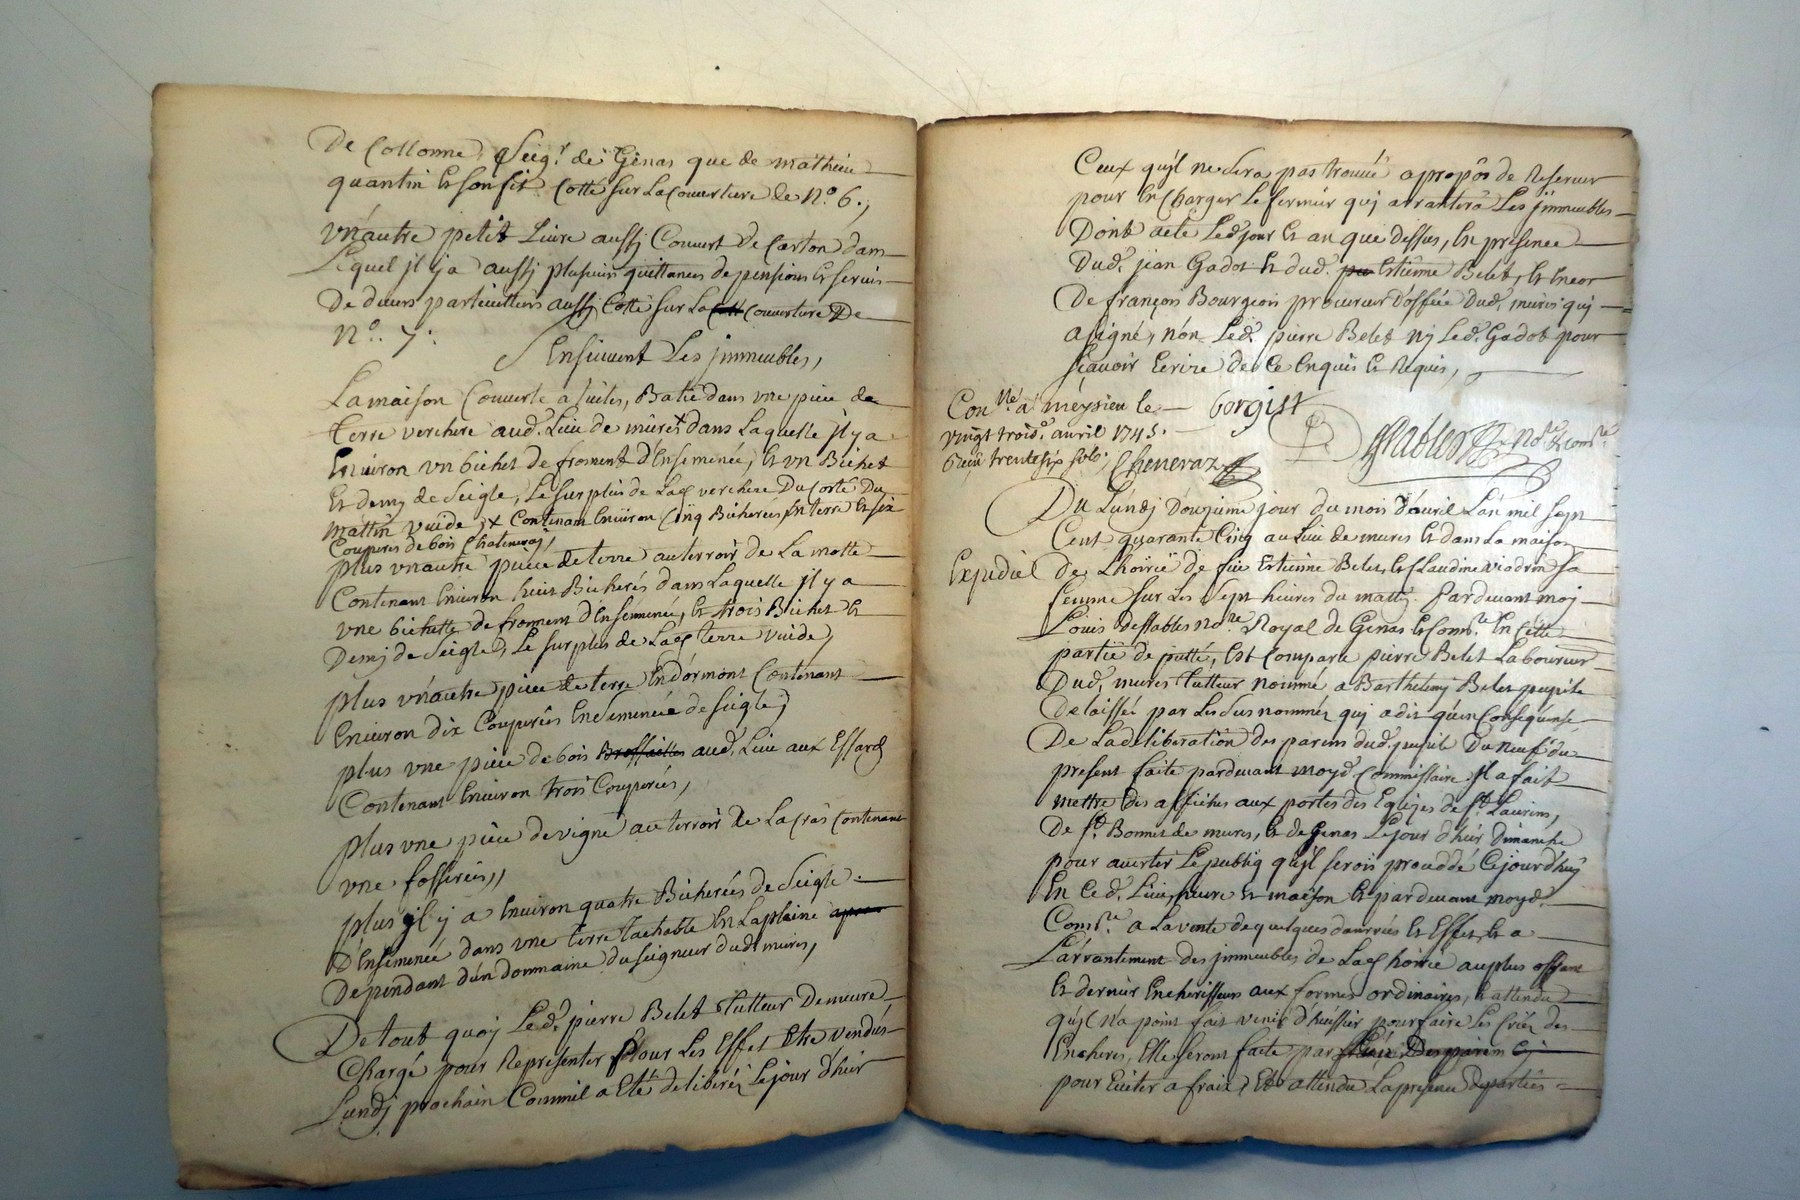 De Collonne, Seigr. de Genas que de mathieu
quantin Et son fils Cotté sur La Couverture de No. 6.,
un autre petit Livre aussj Couvert De Carton dans
Lequel jl ja aussj plusieurs quittances de pensions Et servis
De divers particuliers aussj Cotté sur La Couverture De
No. 7.
Ensuivent Les jmmeubles,
La maison Couverte a tuiles, Batie dans une piece de
terre verchere aud. Lieu de mures dans Laquelle jl ya
Environ un bichet de froment d'Ensemencé, Et un Bichet
Et demy de Seigle, Le surplus de Lad verchere Du Coste Du
mattin vuide, x Contenant Environ Cinq Bicherées En terre Et six
Couperées de bois Chatenay,
plus un autre piece de terre au terroir de La motte
Contenant Environ huit Bicherés dans Laquelle jl y a
une bichette de froment d'Ensemencé, Et trois Bichet Et
Demj de Seigle, Le surplus de Lad terre vuide,
plus un autre piece de terre En dormont Contenant
Environ dix Couperées Ensemencée de Seigle,
plus une piece de bois Brossailles aud. Lieu aux Essards
Contenant Environ trois Couperées,
plus une piece de vigne au terroir de La Cras Contenant
une fosserées,,
plus jl y a Environ quatre Bicherées de Seigle
d'Ensemencé dans une terre tachable En La plaine
Dependant d'un dommaine du seigneur dud. mures,
De tout quoj Led. pierre Belet tutteur Demeure
Chargé pour Representer pour Les Effet Etre vendus
Lundj prochain Comme jl a Eté deliberé Le jour d'hier
Ceux qu'jl ne sera pas trouvé a propos de Reserver
pour En Charger Le fermier quj arrantera Les jmmeubles
Dont acte Led jour Et an que dessus, En presence
Dud. jean Gadot Et dud. Estienne Belet, Et Encor
De françois Bourgeois procureur d'office dud. mures quj
a signé, non Led. pierre Belet nj Led. Gadot pour
sçavoir Ecrire de Ce Enquis Et Requis,
Con.lle a meysieu le
vingt trois. avril 1745.
Reçu trente six sols, Cheneraz
borgist
Dessables No.re Et Com.re
Du Lundj Douzieme jour du mois d'avril L'an mil sept
Cent quarante Cinq au Lieu de mures Et dans La maison
Expedié
De L'hoirie de feu Estienne Belet, Et Claudine viadrin sa
femme sur Les sept heures du mattin. Pardevant moj
Louis dessables No.re Royal de Genas Et Com.re En Cette
partie deputté, Est Comparu pierre Belet Laboureur
Dud. mures tutteur nommé a Barthelemj Belet pupile
Delaissé par Les susnommés quj a dit qu'en Consequense
De La deliberation des parens dud. pupil Du neuf du
present faite pardevant moyd. Commissaire. jl a fait
mettre des affiches aux portes des Eglizes de St. Laurens,
De St. Bonnet de mures, Et de Genas Le jour d'hier Dimanche
pour avertir Le publiq qu'jl seroit procedé Ce jourd'huy
En Ced. Lieu, heure Et maison Et pardevant moyd.
Com.re a La vente de quelques danrées Et Effet, Et a
L'arrantement des jmmeubles de Lad hoirie au plus offrant
Et dernier Encherisseur aux formes ordinaires, Et attendu
qu'jl n'a point fait venir d'huissier pour faire Les Criées des
Encheres, Elle seront faite par
pour Eviter a frais, Et attendu La presence de parties